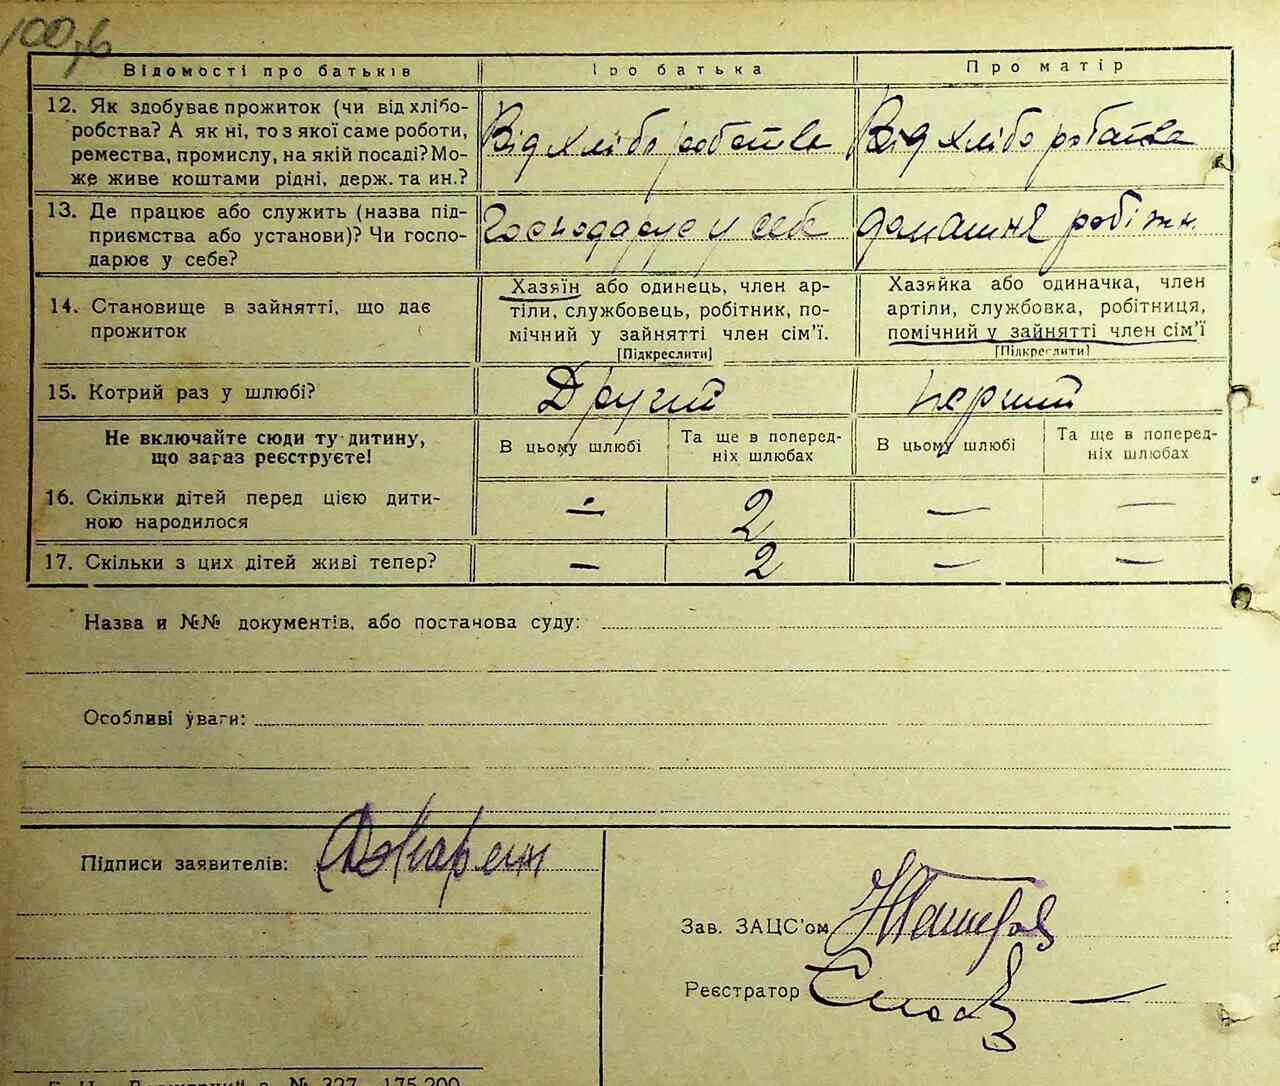 100
Відомості про батьків
Про батька
Про матір
12. Як здобуває прожиток (чи від хлібо-
робства? А як ні, то з якої саме роботи,
ремества, промислу, на якій посаді? Мо-
же живе коштами рідні, держ. та ин.?
Від хліборобства
Від хліборобства
13. Де працює або служить (назва під-
приємства або установи)? Чи госпо-
дарює у себе?
Господарує у себе
домашня робітн.
14. Становище в зайнятті, що дає
прожиток
Хазяїн або одинець, член ар-
тіли, службовець, робітник, по-
мічний у зайнятті член сім'ї.
[Підкреслити]
Хазяйка або одиначка, член
артіли, службовка, робітниця,
помічний у зайнятті член сім'ї
[Підкреслити]
15. Котрий раз у шлюбі?
Другий
перший
Не включайте сюди ту дитину,
що зараз реєструєте!
В цьому шлюбі
Та ще в поперед-
ніх шлюбах
В цьому шлюбі
Та ще в поперед-
ніх шлюбах
16. Скільки дітей перед цією дити-
ною народилося
— 2 — —
17. Скільки з цих дітей живі тепер?
— 2 — —
Назва и №№ документів, або постанова суду:
Особливі уваги:
Підписи заявителів:
Зав. ЗАЦС'ом
Реєстратор
№ 327 175.200